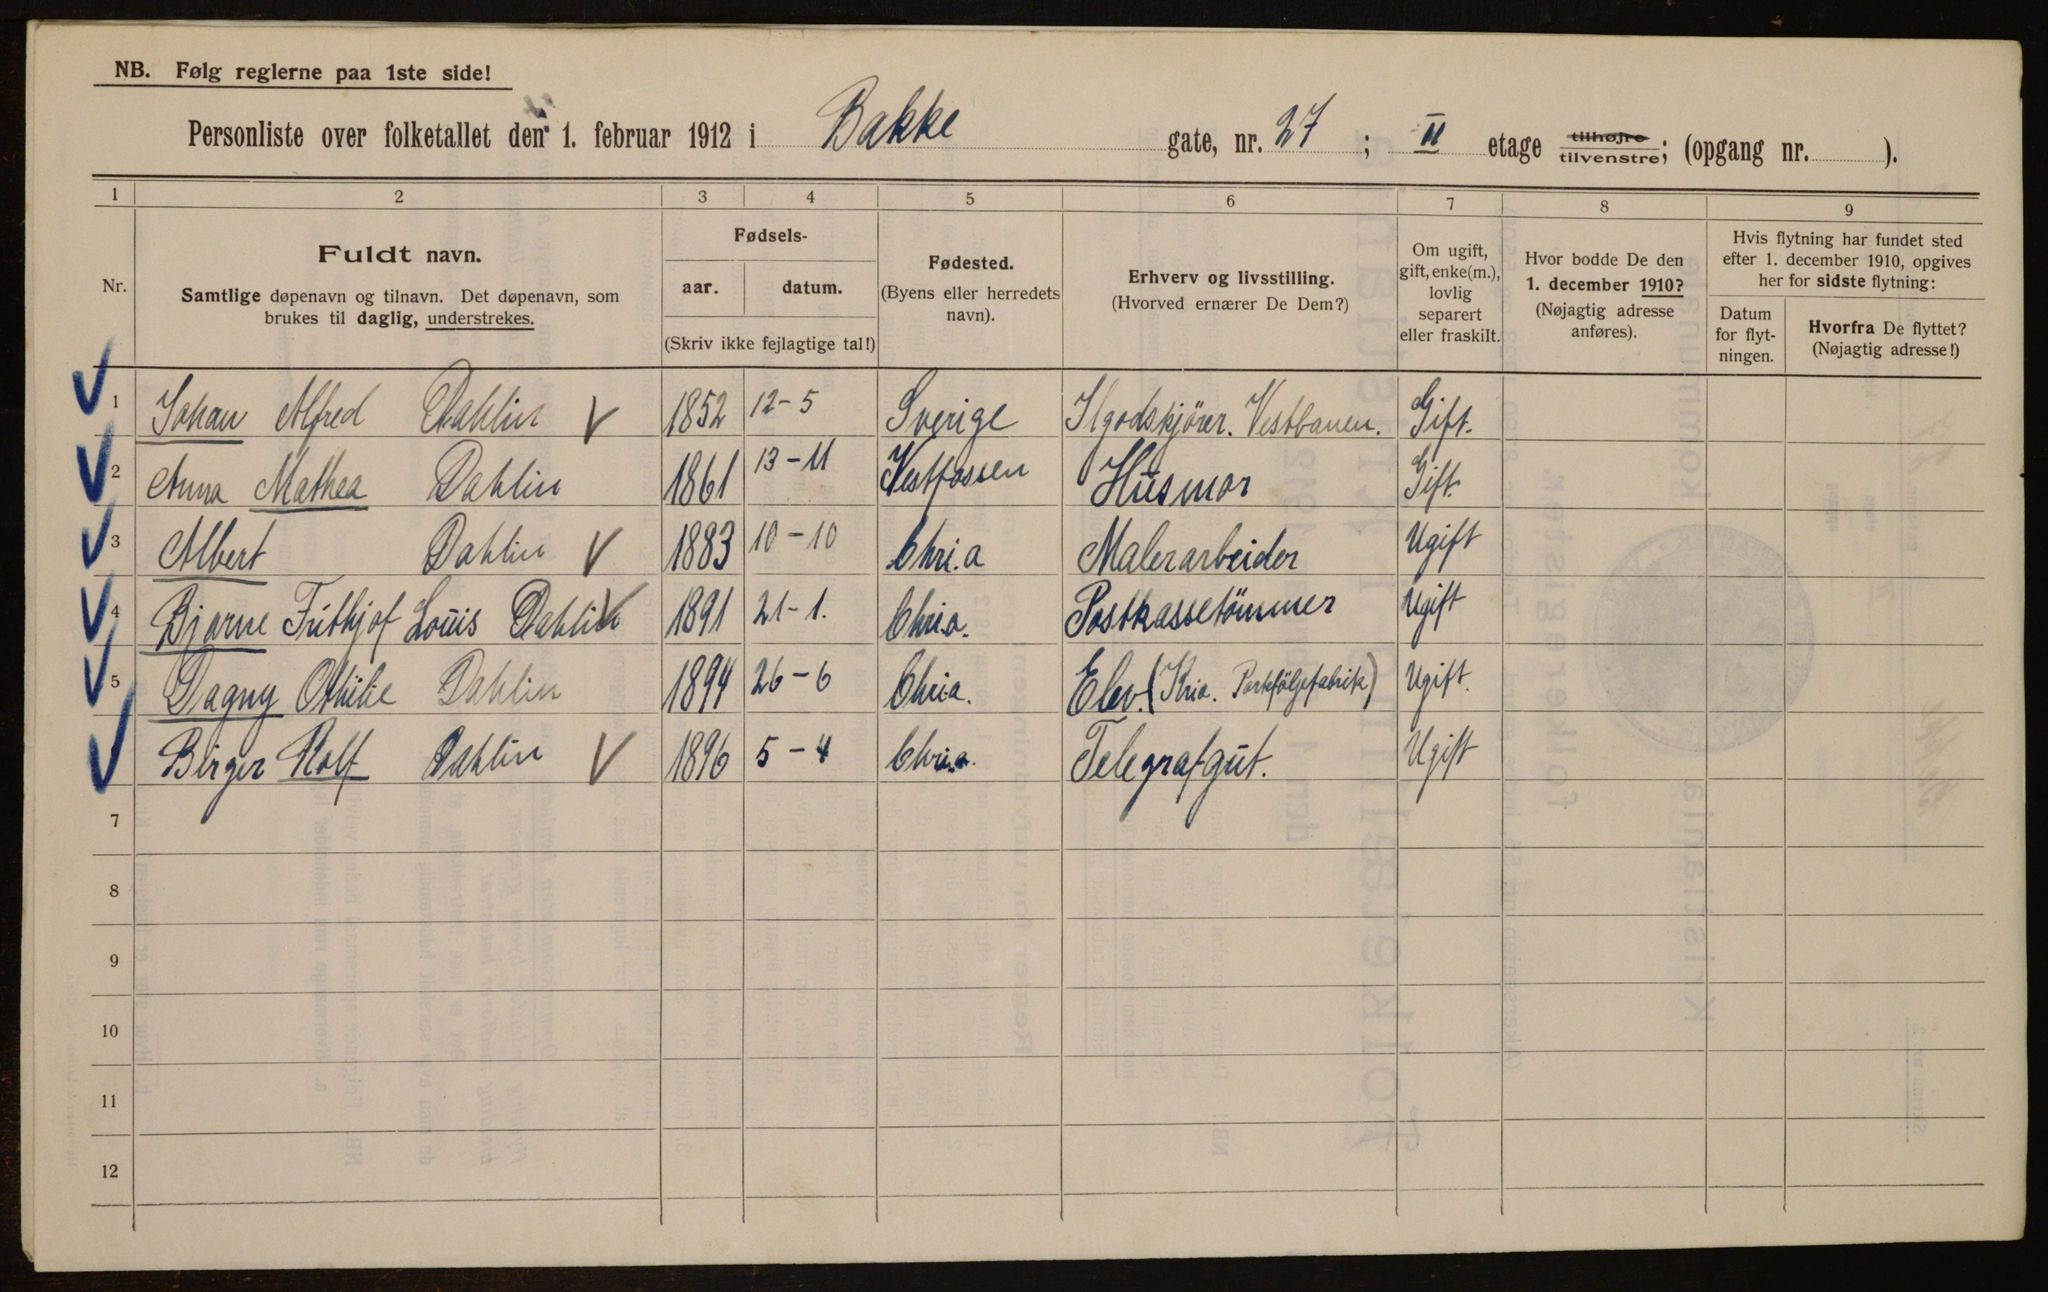 NB. Følg reglerne paa 1ste side!
Personliste over folketallet den 1. februar 1912 i Bakke gate, nr. 27 ; II etage tilhøjre tilvenstre; (opgang nr. ).
1 2 3 4 5 6 7 8 9
Nr.
Fuldt navn.
Samtlige døpenavn og tilnavn. Det døpenavn, som
brukes til daglig, understrekes.
Fødsels-
aar. datum.
(Skriv ikke fejlagtige tal!)
Fødested.
(Byens eller herredets
navn).
Erhverv og livsstilling.
(Hvorved ernærer De Dem?)
Om ugift,
gift, enke(m.),
lovlig
separert
eller fraskilt.
Hvor bodde De den
1. december 1910?
(Nøjagtig adresse
anføres).
Hvis flytning har fundet sted
efter 1. december 1910, opgives
her for sidste flytning:
Datum
for flyt-
ningen.
Hvorfra De flyttet?
(Nøjagtig adresse!)
1 Johan Alfred Dahlin 1852 12-5 Sverige Ilgodskjører. Vestbanen. Gift.
2 Anna Mathea Dahlin 1861 13-11 Vestfossen Husmor Gift.
3 Albert Dahlin 1883 10-10 Chri.a Malerarbeider Ugift
4 Bjarne Frithjof Louis Dahlin 1891 21-1. Chri.a. Postkassetömmer Ugift
5 Dagny Othilie Dahlin 1894 26-6 Chri.a. Elev. (Kria. Portföljefabrik) Ugift.
Birger Rolf Dahlin 1896 5-4 Chri.a. Telegrafgut. Ugift
7
8
9
10
11
12